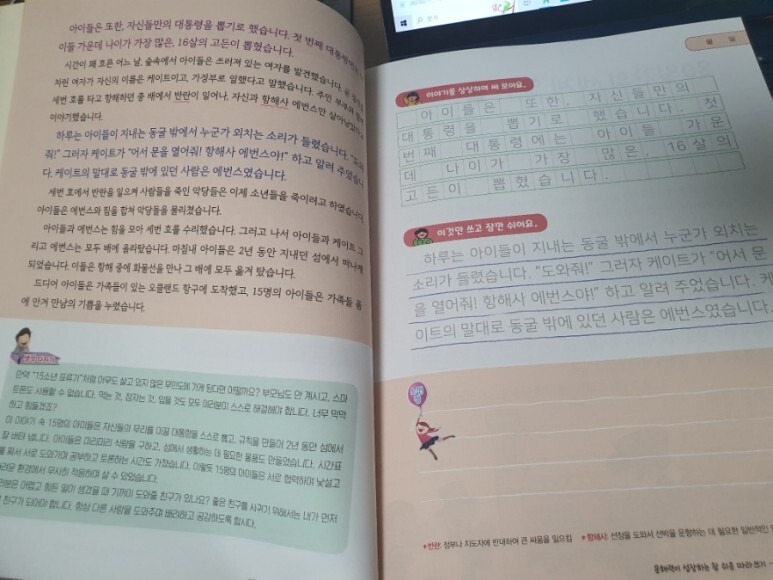 아이들은 또한, 자신들만의 대통령을 뽑기로 했습니다. 첫 번째 대통령에는
이들 가운데 나이가 가장 많은, 16살의 고든이 뽑혔습니다.
시간이 꽤 흐른 어느 날, 숲속에서 아이들은 쓰러져 있는 여자를 발견했습니다.
자린 여자가 자신의 이름은 케이트이고, 가정부로 일했다고 말했습니다. 주인 부부와
세번 호를 타고 항해하던 중 배에서 반란이 일어나, 자신과 항해사 에번스만 살아남았다고
이야기했습니다.
하루는 아이들이 지내는 동굴 밖에서 누군가 외치는 소리가 들렸습니다. "도와
줘!" 그러자 케이트가 "어서 문을 열어줘! 항해사 에번스야!" 하고 알려 주었습니
다. 케이트의 말대로 동굴 밖에 있던 사람은 에번스였습니다.
세번 호에서 반란을 일으켜 사람들을 죽인 악당들은 이제 소년들을 죽이려고 하였습니다.
아이들은 에번스와 힘을 합쳐 악당들을 물리쳤습니다.
아이들과 에번스는 힘을 모아 세번 호를 수리했습니다. 그러고 나서 아이들과 케이트 그
리고 에번스는 모두 배에 올라탔습니다. 마침내 아이들은 2년 동안 지내던 섬에서 떠나게
되었습니다. 이들은 항해 중에 화물선을 만나 그 배에 모두 옮겨 탔습니다.
드디어 아이들은 가족들이 있는 오클랜드 항구에 도착했고, 15명의 아이들은 가족들 품
에 안겨 만남의 기쁨을 누렸습니다.
만약 "15소년 표류기"처럼 아무도 살고 있지 않은 무인도에 가게 된다면 어떨까요? 부모님도 안 계시고, 스마
트폰도 사용할 수 없습니다. 먹는 것, 잠자는 것, 입을 것도 모두 여러분이 스스로 해결해야 합니다. 너무 막막
하고 힘들겠죠?
이 이야기 속 15명의 아이들은 자신들의 무리를 이끌 대통령을 스스로 뽑고, 규칙을 만들어 2년 동안 섬에서
잘 버텨 냅니다. 아이들은 미리미리 식량을 구하고, 섬에서 생활하는 데 필요한 물품도 만들었습니다. 시간표
를 짜서 서로 도와가며 공부하고 토론하는 시간도 가졌습니다. 이렇듯 15명의 아이들은 서로 협력하여 낯설고
환경에서 무사히 적응하며 살 수 있었습니다.
어렵고 힘든 일이 생겼을 때 기꺼이 도와줄 친구가 있나요? 좋은 친구를 사귀기 위해서는 내가 먼저
친구가 되어야 합니다. 항상 다른 사람을 도와주며 배려하고 공감하도록 합시다.
월 일
이야기를 상상하며 써 보아요.
아이들은 또한, 자신들만의
대통령을 뽑기로 했습니다. 첫
번째 대통령에는 아이들 가운
데 나이가 가장 많은, 16살의
고든이 뽑혔습니다.
이것만 쓰고 잠깐 쉬어요.
하루는 아이들이 지내는 동굴 밖에서 누군가 외치는
소리가 들렸습니다. "도와줘!" 그러자 케이트가 "어서 문
을 열어줘! 항해사 에번스야!" 하고 알려 주었습니다. 케
이트의 말대로 동굴 밖에 있던 사람은 에번스였습니다.
*반란: 정부나 지도자에 반대하여 큰 싸움을 일으킴 *항해사: 선장을 도와서 선박을 운항하는 데 필요한 일반적인
문해력이 성장하는 잘 쉬운 따라 쓰기